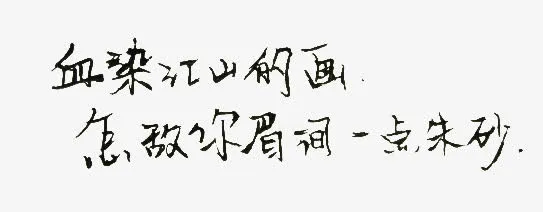 血染江山的画.
怎敌你眉间一点朱砂.